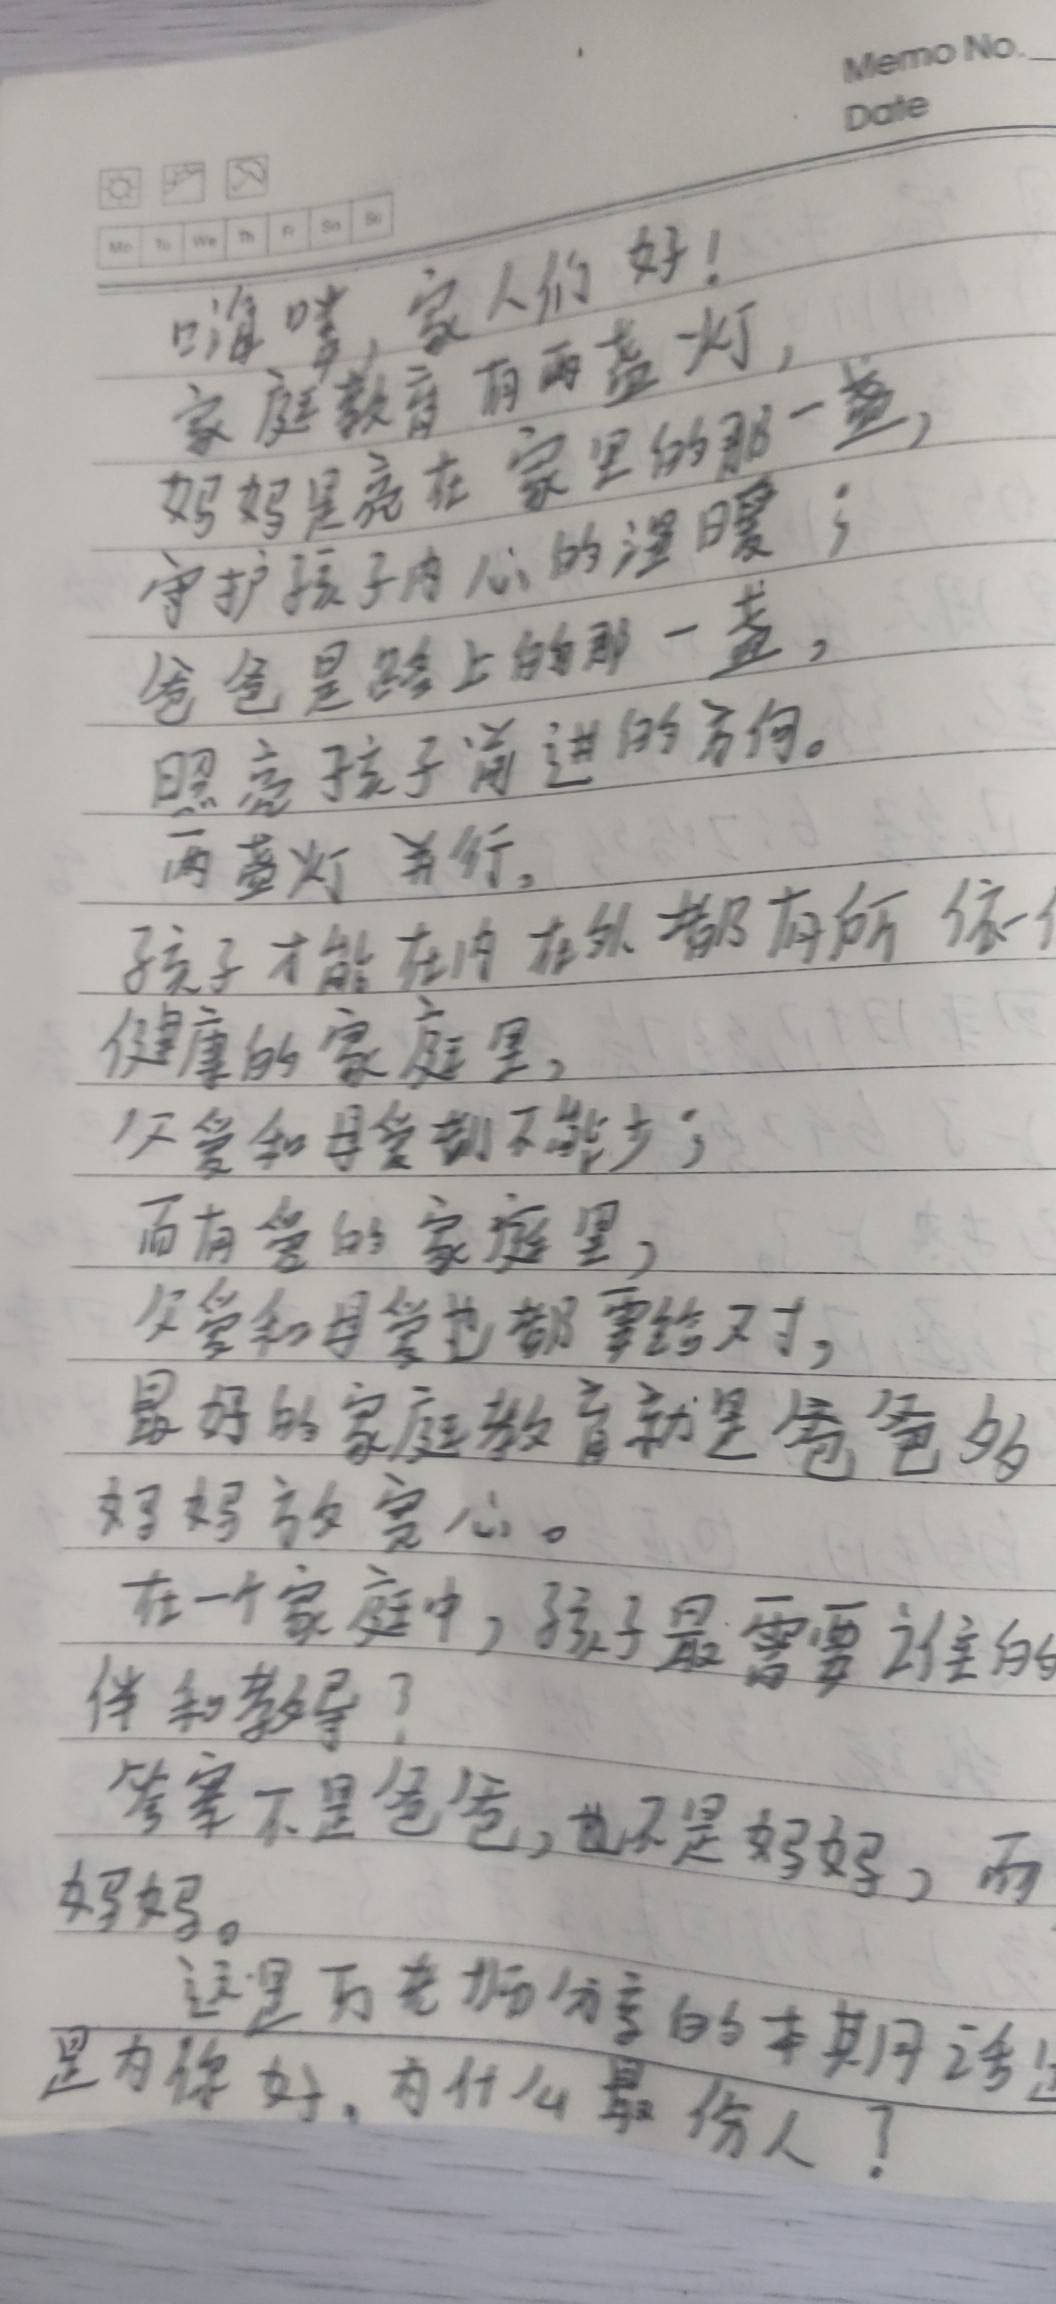 Memo No.
Date
Mo Tu We Th Fr Sa Su
嗨喽，家人们好！
家庭教育有两盏灯，
妈妈是亮在家里的那一盏，
守护孩子内心的温暖；
爸爸是路上的那一盏，
照亮孩子前进的方向。
两盏灯并行。
孩子才能在内在外都有所依
健康的家庭里，
父爱和母爱都不能少；
而有爱的家庭里，
父爱和母爱也都要给对，
最好的家庭教育就是爸爸多
妈妈放宽心。
在一个家庭中，孩子最需要谁的
伴和教导？
答案不是爸爸，也不是妈妈，而
妈妈。
这是万老师分享的本期话
是为你好，为什么最伤人？